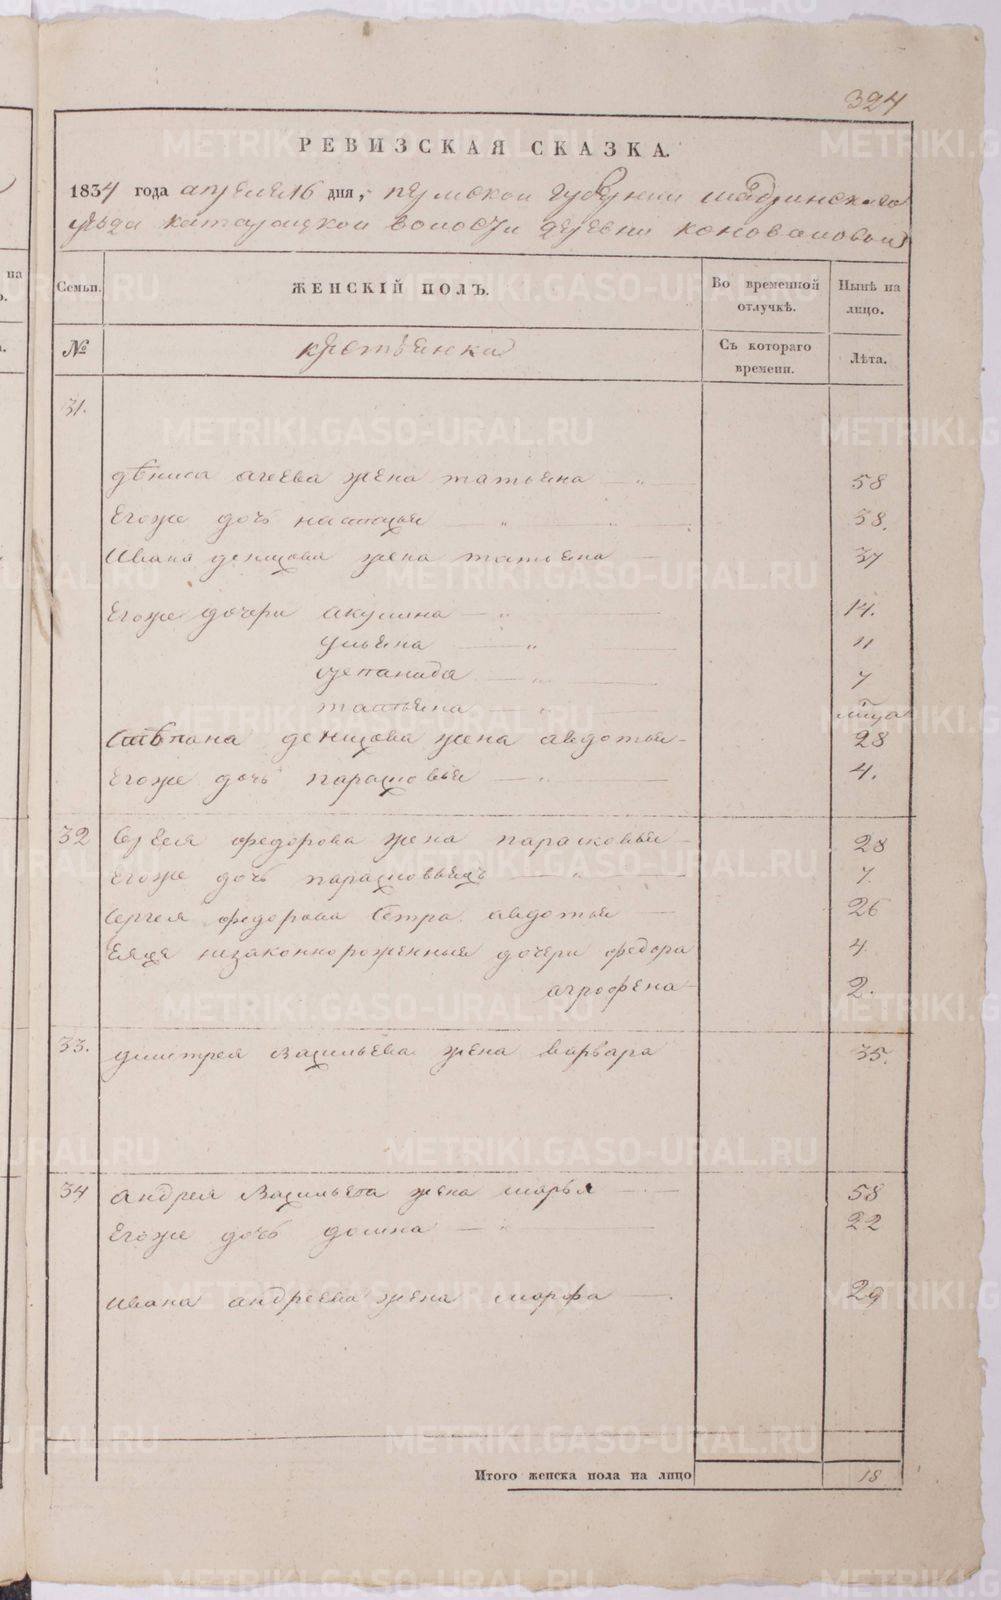 324
РЕВИЗСКАЯ СКАЗКА.
1834 года апреля 16 дня, пермской губернии шадринскаго
уѣзда катайской волости деревни коноваловой
Семьи. ЖЕНСКІЙ ПОЛЪ. Во временной отлучкѣ. Нынѣ на лицо.
№ крестьянки Съ котораго времени. Лѣта.
31.
дѣниса агеева жена татьяна — 58
Егоже дочь настасья — 58.
Ивана денисова жена татьяна — 37
Егоже дочери акулина — 14.
ульяна — 11
степанида — 7
татьяна —
Стѣпана денисова жена авдотья — 28
Егоже дочь парасковья — 4.
32 Сергея федорова жена парасковья — 28
Егоже дочь — 7.
Сергея федорова сестра авдотья — 26
Еяже незаконнорожденныя дочери федора 4
агрофена — 2.
33. дмитрея васильева жена варвара 35.
34 андрея васильева жена марья — 58
Егоже дочь домна — 22
ивана андреева жена марфа — 29
Итого женска пола на лицо 18
METRIKI.GASO-URAL.RU